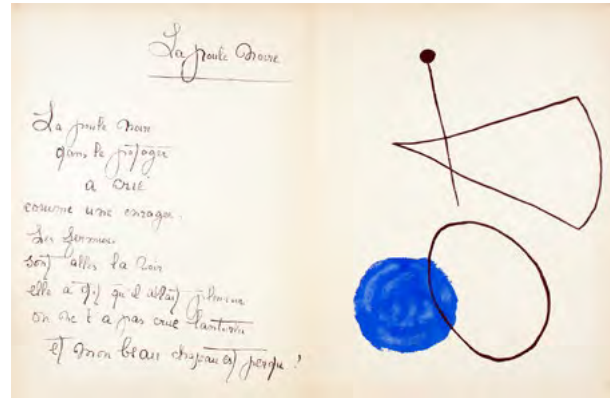 La poule Noire
La poule Noire
dans le potager
a crié
comme une enragée.
Les femmes
sont allés la Voir
elle a dit qu'il allait pleuvoir
on ne l'a pas crue
et mon beau chapeau est perdu !